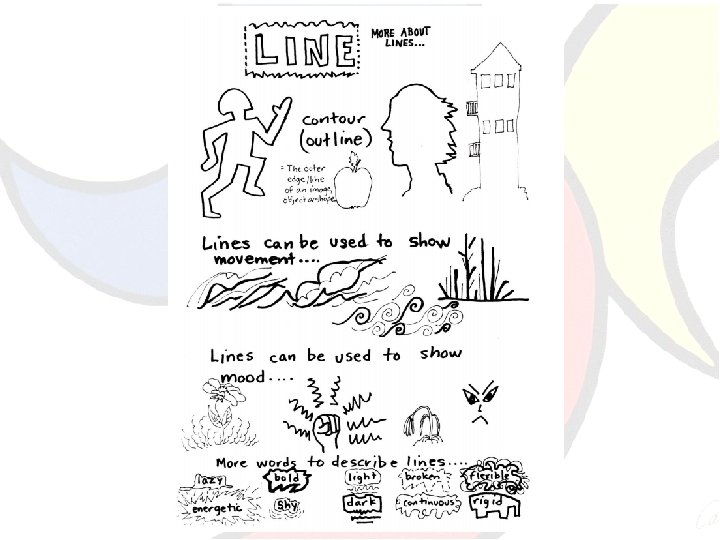 LINE
MORE ABOUT
LINES...
contour
(outline)
= The outer
edge/line
of an image,
object or shape
Lines can be used to show
movement....
Lines can be used to show
mood....
More words to describe lines....
lazy
bold
light
broken
flexible
energetic
shy
dark
continuous
rigid